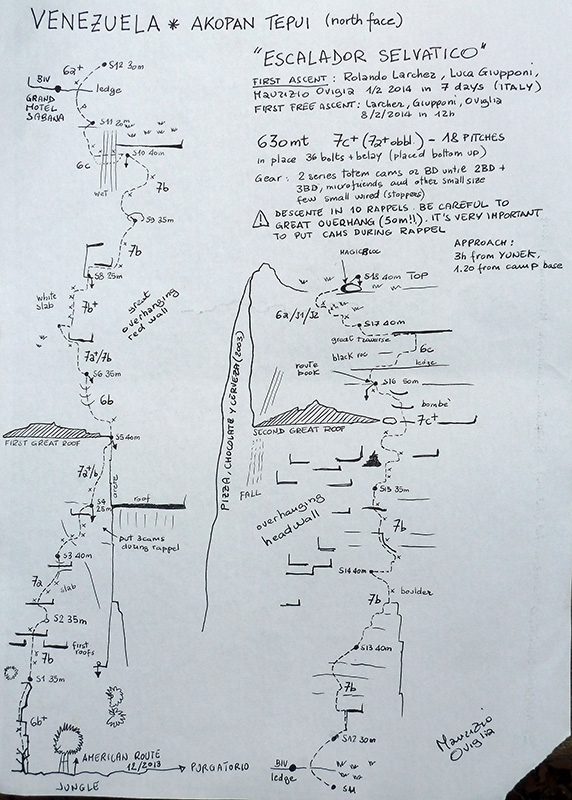 VENEZUELA * AKOPAN TEPUI (north face)
"ESCALADOR SELVATICO"
FIRST ASCENT: Rolando Larcher, Luca Giupponi,
Maurizio Oviglia 1/2 2014 in 7 days (ITALY)
FIRST FREE ASCENT: Larcher, Giupponi, Oviglia
8/2/2014 in 12h
630mt 7c+ (7a+ obbl) - 18 PITCHES
in place 36 bolts + belay (placed bottom up)
Gear: 2 series totem cams or BD until 2BD +
3BD, microfriends and other small size
few small wired (stoppers)
DESCENTE IN 10 RAPPELS. BE CAREFUL TO
GREAT OVERHANG (50m!!). IT'S VERY IMPORTANT
TO PUT CAMS DURING RAPPEL
APPROACH:
3h from YUNEK,
1.20 from camp base
S12 30m
6a+
BIV
ledge
GRAND
HOTEL
SABANA
S11
S10 40m
6c
WET
7b
S9 35m
7b
S8 25m
white
slab
7b+
great
overhanging
red wall
7a+/7b
S6 35m
6b
S5 40m
FIRST GREAT ROOF
7a+/b
S4
25m
roof
put 3 cams
during rappel
S3 40m
7a
slab
S2 35m
first
roofs
7b
S1 35m
6b+
AMERICAN ROUTE
12/2013
PURGATORIO
JUNGLE
MAGIC BLOC
S18 40m TOP
6a/S1/S2
S17 40m
great traverse
6c
black roc
ledge
route
book
S16 50m
bombe'
7c+
SECOND GREAT ROOF
PIZZA, CHOCOLATE Y CERVEZA (2003)
FALL
S15 35m
overhanging
headwall
7b
S14 40m
boulder
7b
S13 40m
7b
S12 30m
BIV
ledge
S11
Maurizio
Oviglia